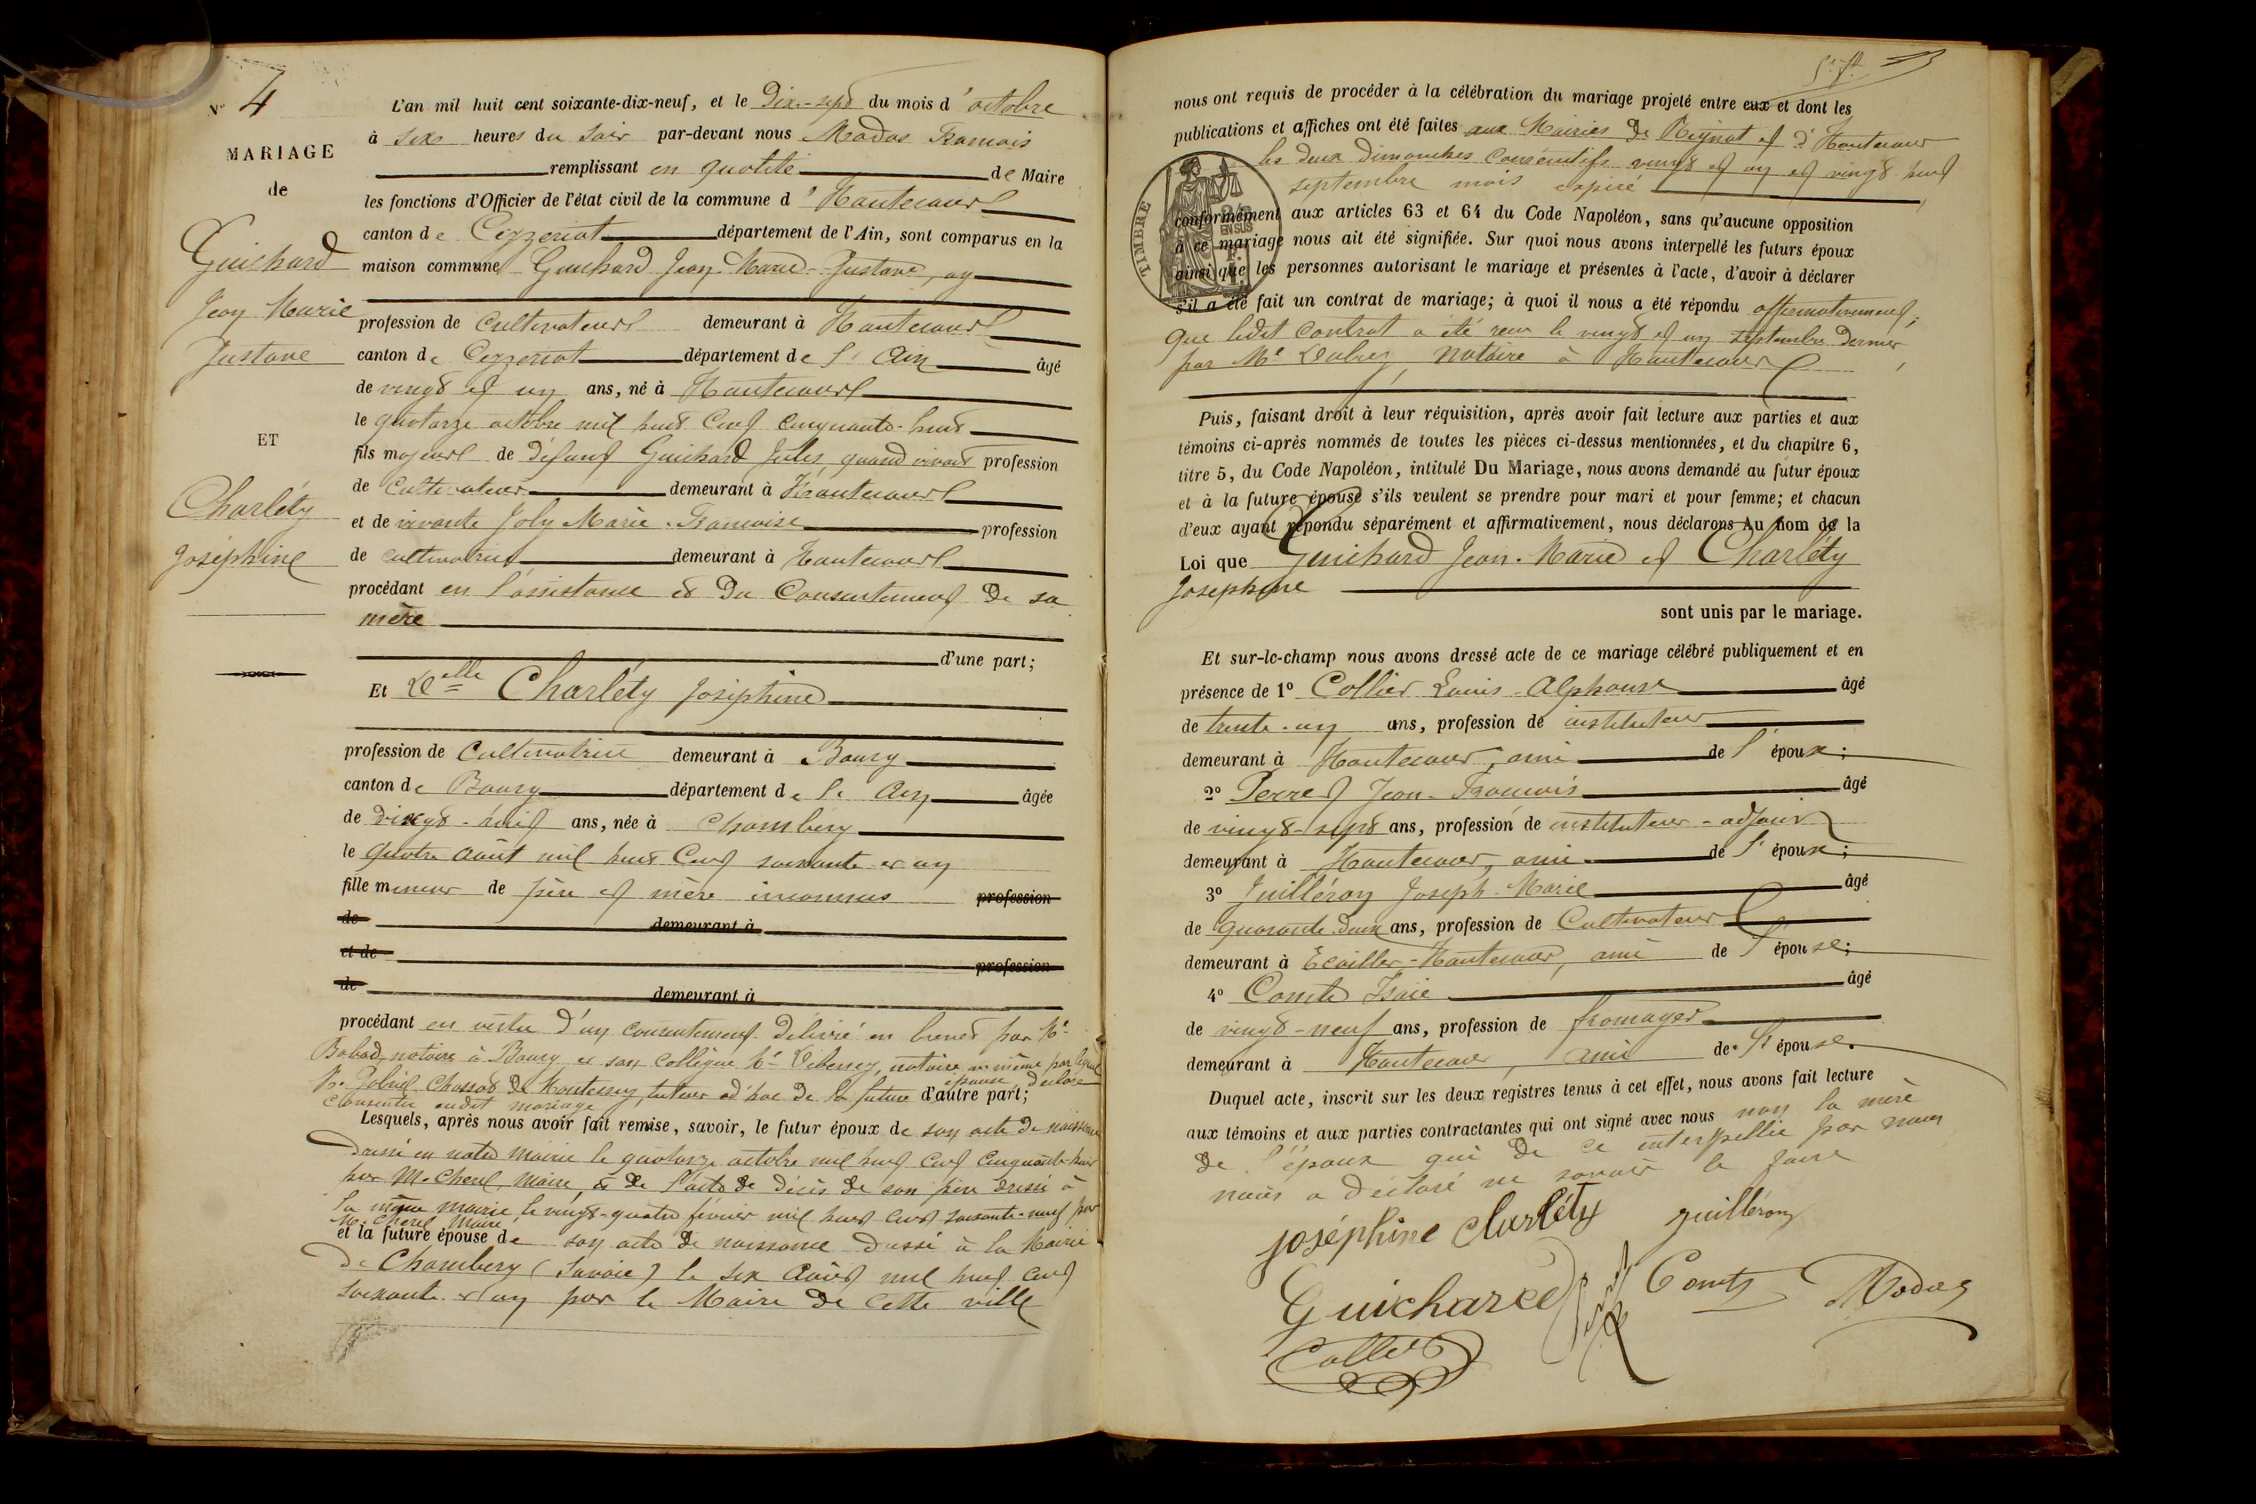 N° 4
MARIAGE
de
Guichard
Jean Marie
Gustave
ET
Charléty
Joséphine
L'an mil huit cent soixante-dix-neuf, et le Dix-sept du mois d'octobre
à six heures du soir par-devant nous Modas François
remplissant en qualité de Maire
les fonctions d'Officier de l'état civil de la commune d'Hautecourt
canton de Ceyzeriat département de l'Ain, sont comparus en la
maison commune Guichard Jean-Marie-Gustave,
profession de cultivateur demeurant à Hautecourt
canton de Ceyzeriat département de l'Ain âgé
de vingt et un ans, né à Hautecourt
le quatorze octobre mil huit cent cinquante-huit
fils majeur de défunt Guichard Jules, quand vivait profession
de cultivateur demeurant à Hautecourt
et de vivante Joly Marie-Françoise profession
de cultivatrice demeurant à Hautecourt
procédant en l'assistance et du consentement de sa
mère
d'une part;
Et Delle Charléty Joséphine
profession de Cultivatrice demeurant à Bourg
canton de Bourg département de l'Ain âgée
de dix-huit ans, née à Chambéry
le quatre août mil huit cent soixante et un
fille mineur de père et mère inconnus profession
de demeurant à
et de profession
de demeurant à
procédant en vertu d'un consentement délivré en brevet par Me
Babad, notaire à Bourg et son collègue Me notaire au même par lequel
Mr Chossat de Montessuy, tuteur ad'hoc de la future épouse déclare d'autre part;
consentir audit mariage
Lesquels, après nous avoir fait remise, savoir, le futur époux de son acte de naissance
dressé en notre mairie le quatorze octobre mil huit cent cinquante-huit
par M. Cherel, Maire, et de l'acte de décès de son père dressé à
la même mairie le vingt-quatre février mil huit cent soixante-neuf par
M. Cherel Maire
et la future épouse de son acte de naissance dressé à la Mairie
de Chambéry (Savoie) le six août mil huit cent
soixante et un par le Maire de cette ville
nous ont requis de procéder à la célébration du mariage projeté entre eux et dont les
publications et affiches ont été faites aux Mairies de Reignat et d'Hautecour
les deux dimanches consécutifs vingt et un et vingt huit
septembre mois expiré
TIMBRE
2/10 EN SUS
conformément aux articles 63 et 64 du Code Napoléon, sans qu'aucune opposition
à ce mariage nous ait été signifiée. Sur quoi nous avons interpellé les futurs époux
ainsi que les personnes autorisant le mariage et présentes à l'acte, d'avoir à déclarer
s'il a été fait un contrat de mariage; à quoi il nous a été répondu affirmativement;
que ledit contrat a été reçu le vingt et un septembre dernier
par Me notaire à Hautecour
Puis, faisant droit à leur réquisition, après avoir fait lecture aux parties et aux
témoins ci-après nommés de toutes les pièces ci-dessus mentionnées, et du chapitre 6,
titre 5, du Code Napoléon, intitulé Du Mariage, nous avons demandé au futur époux
et à la future épouse s'ils veulent se prendre pour mari et pour femme; et chacun
d'eux ayant répondu séparément et affirmativement, nous déclarons Au nom de la
Loi que Guichard Jean-Marie et Charléty
Joséphine
sont unis par le mariage.
Et sur-le-champ nous avons dressé acte de ce mariage célébré publiquement et en
présence de 1° Collier Louis-Alphonse âgé
de trente-un ans, profession de instituteur
demeurant à Hautecour, ami de l'époux;
2° Perret Jean-François âgé
de vingt-sept ans, profession de instituteur-adjoint
demeurant à Hautecour, ami de l'époux;
3° Juilléron Joseph-Marie âgé
de quarante deux ans, profession de Cultivateur
demeurant à Ecaillier-Hautecour, ami de l'épouse;
4° Comte Isaïe âgé
de vingt-neuf ans, profession de fromager
demeurant à Hautecour, ami de l'épouse.
Duquel acte, inscrit sur les deux registres tenus à cet effet, nous avons fait lecture
aux témoins et aux parties contractantes qui ont signé avec nous non la mère
de l'époux qui de ce interpellée par nous
nous a déclaré ne savoir le faire
Joséphine Charléty Juilléron
Guichard Perret Comte Modas
Collier